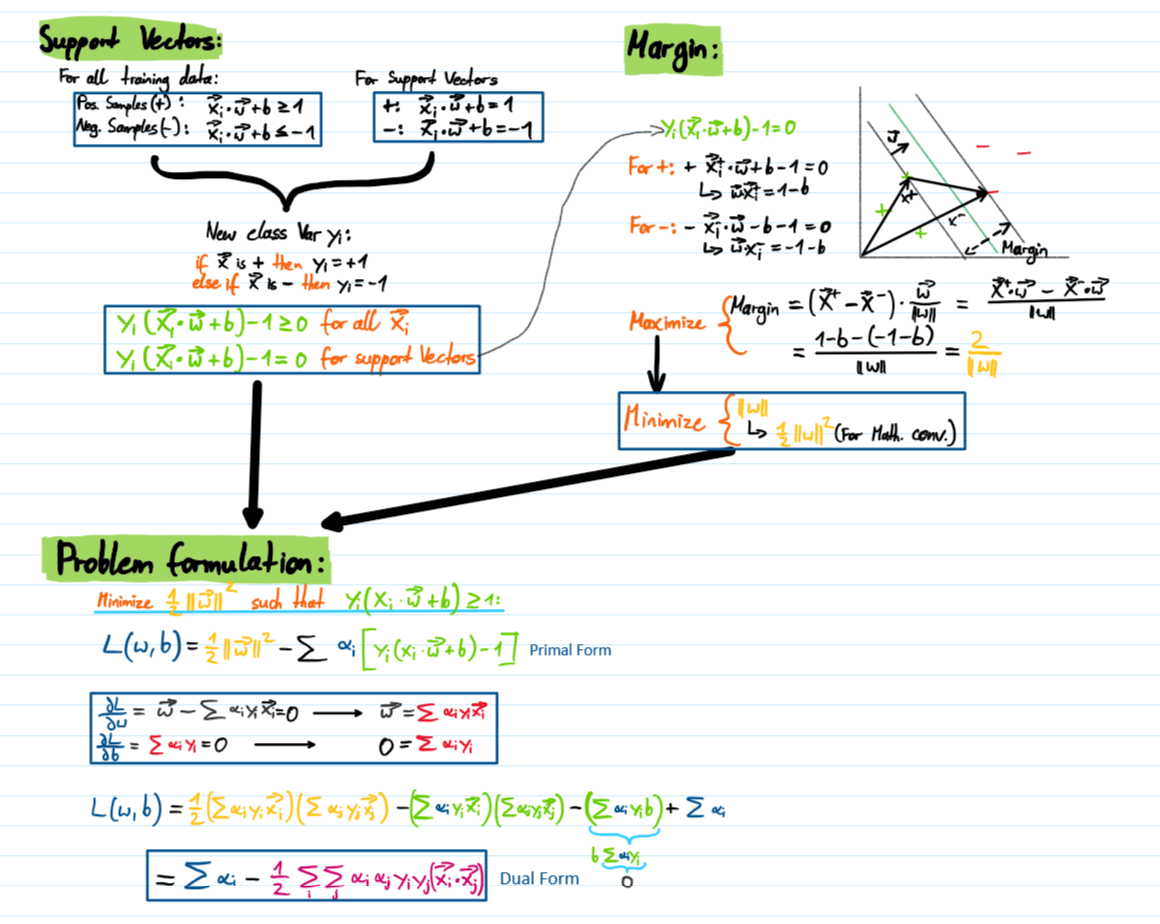 Support Vectors:
For all training data:
Pos. Samples(+): x⃗ᵢ·w⃗+b≥1
Neg. Samples(-): x⃗ᵢ·w⃗+b≤-1
For Support Vectors
+: x⃗ᵢ·w⃗+b=1
-: x⃗ᵢ·w⃗+b=-1
New class Var yᵢ:
if x⃗ is + then yᵢ=+1
else if x⃗ is - then yᵢ=-1
yᵢ(x⃗ᵢ·w⃗+b)-1≥0 for all x⃗ᵢ
yᵢ(x⃗ᵢ·w⃗+b)-1=0 for support Vectors
Margin:
yᵢ(x⃗ᵢ·w⃗+b)-1=0
For +: + x⃗ᵢ⁺·w⃗+b-1=0
↳ w⃗x⃗ᵢ⁺=1-b
For -: - x⃗ᵢ⁻·w⃗-b-1=0
↳ w⃗xᵢ⁻=-1-b
w⃗
x⁺
x⁻
Margin
Maximize { Margin = (x⃗⁺-x⃗⁻)·w⃗/||w|| = (x⃗⁺·w⃗ - x⃗⁻·w⃗)/||w||
= (1-b-(-1-b))/||w|| = 2/||w||
Minimize { ||w||
↳ ½||w||² (For Math. conv.)
Problem formulation:
Minimize ½||w⃗||² such that yᵢ(xᵢ·w⃗+b)≥1:
L(w,b)=½||w⃗||²-∑ αᵢ[yᵢ(xᵢ·w⃗+b)-1] Primal Form
∂L/∂w = w⃗-∑αᵢyᵢx⃗ᵢ=0 → w⃗=∑αᵢyᵢx⃗ᵢ
∂L/∂b = ∑αᵢyᵢ=0 → 0=∑αᵢyᵢ
L(w,b)=½(∑αᵢyᵢx⃗ᵢ)(∑αⱼyⱼx⃗ⱼ)-(∑αᵢyᵢx⃗ᵢ)(∑αⱼyⱼx⃗ⱼ)-(∑αᵢyᵢb)+∑αᵢ
b∑αᵢyᵢ
0
= ∑αᵢ - ½ ∑ᵢ∑ⱼ αᵢαⱼyᵢyⱼ(x⃗ᵢ·x⃗ⱼ) Dual Form